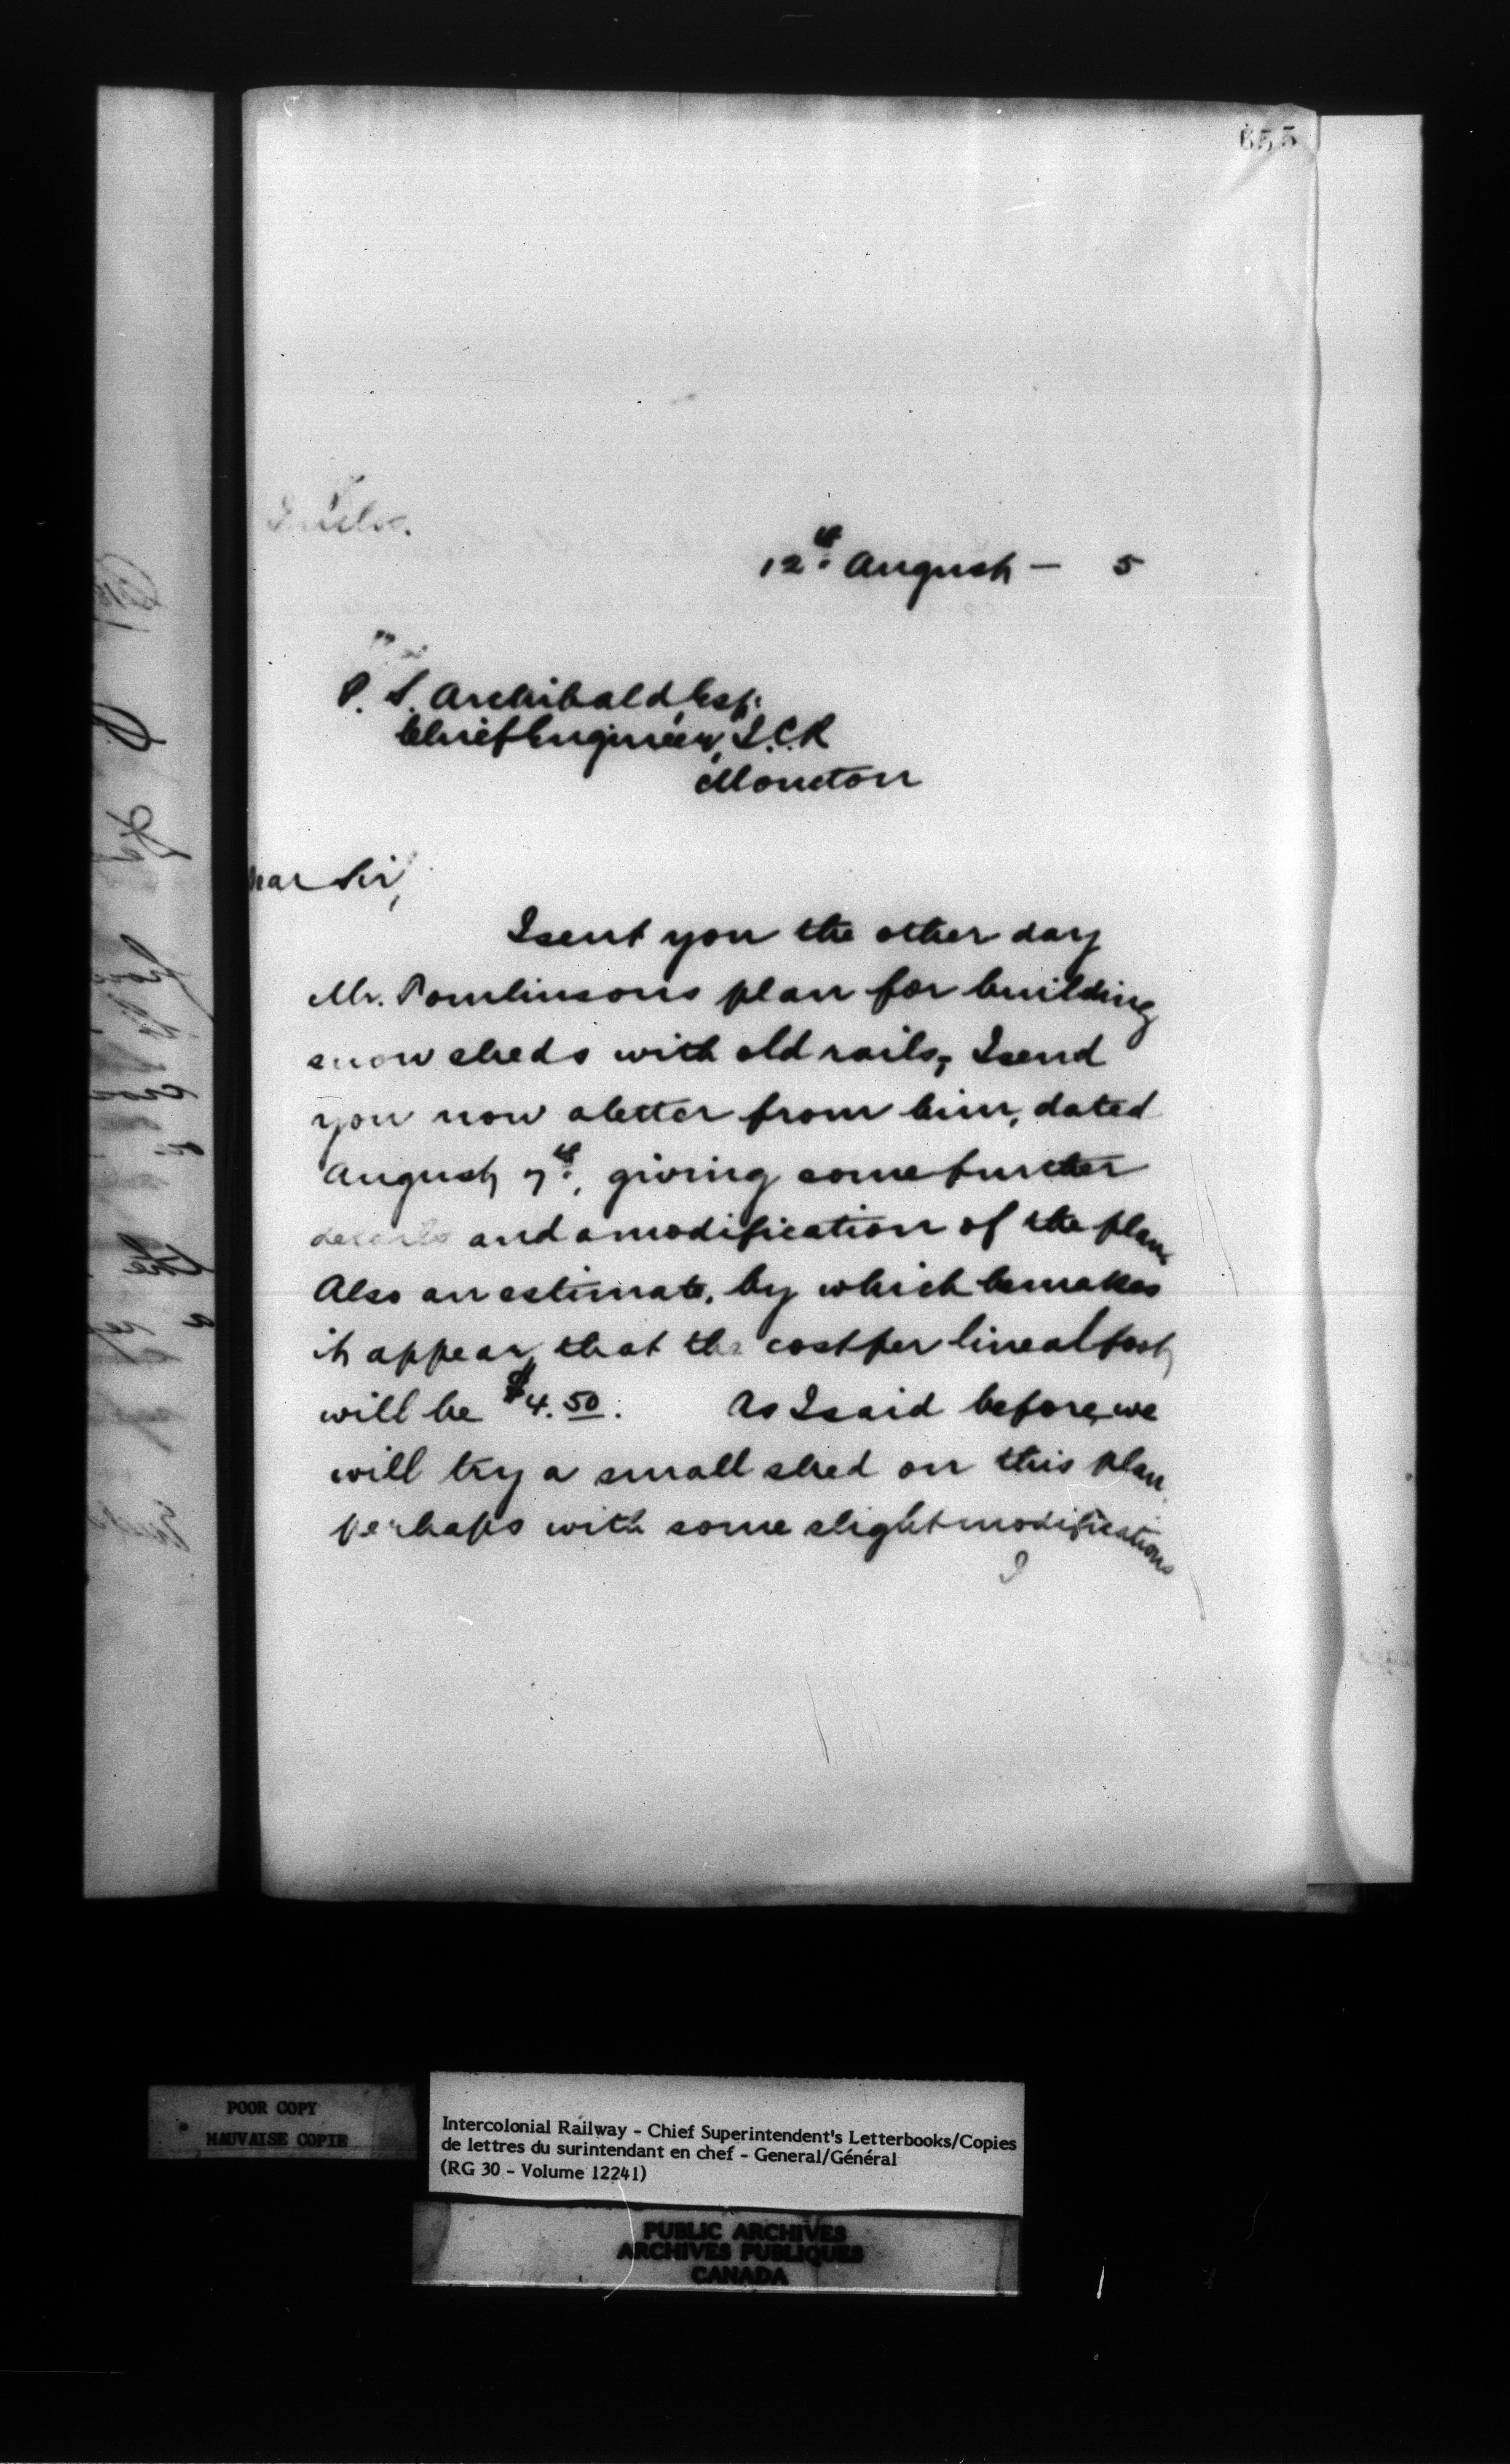 655
12th August - 5
P. S. Archibald, Esq.
Chief Engineer, I.C.R
Moncton
Dear Sir,
I sent you the other day
Mr. Tomlinsons plan for building
snow sheds with old rails, I send
you now a letter from him, dated
August 7th, giving some further
details and a modification of the plan.
Also an estimate, by which he makes
it appear, that the cost per lineal foot,
will be $4.50. As I said before, we
will try a small shed on this plan
perhaps with some slight modifications
I
POOR COPY
MAUVAISE COPIE
Intercolonial Railway - Chief Superintendent's Letterbooks/Copies
de lettres du surintendant en chef - General/Général
(RG 30 - Volume 12241)
PUBLIC ARCHIVES
ARCHIVES PUBLIQUES
CANADA